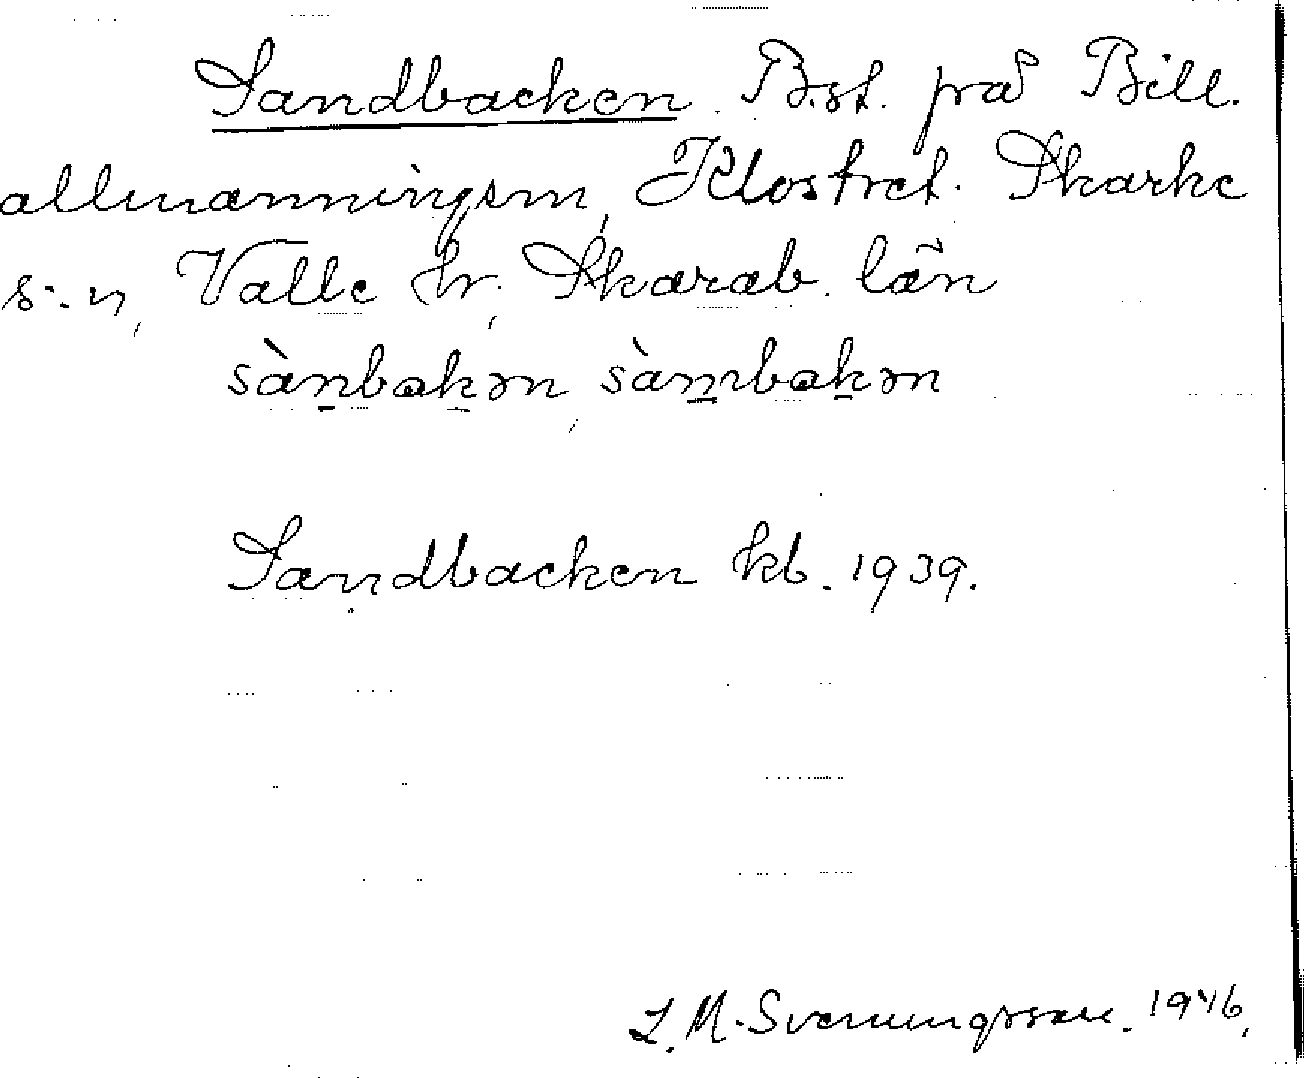 Sandbacken. B.st. på Bill.
allmänningsm, Klostret. Skarke
s:n, Valle hr, Skarab. län
sànbakən, sàmbakən
Sandbacken kb. 1939.
L.M. Svenungsson. 1946.